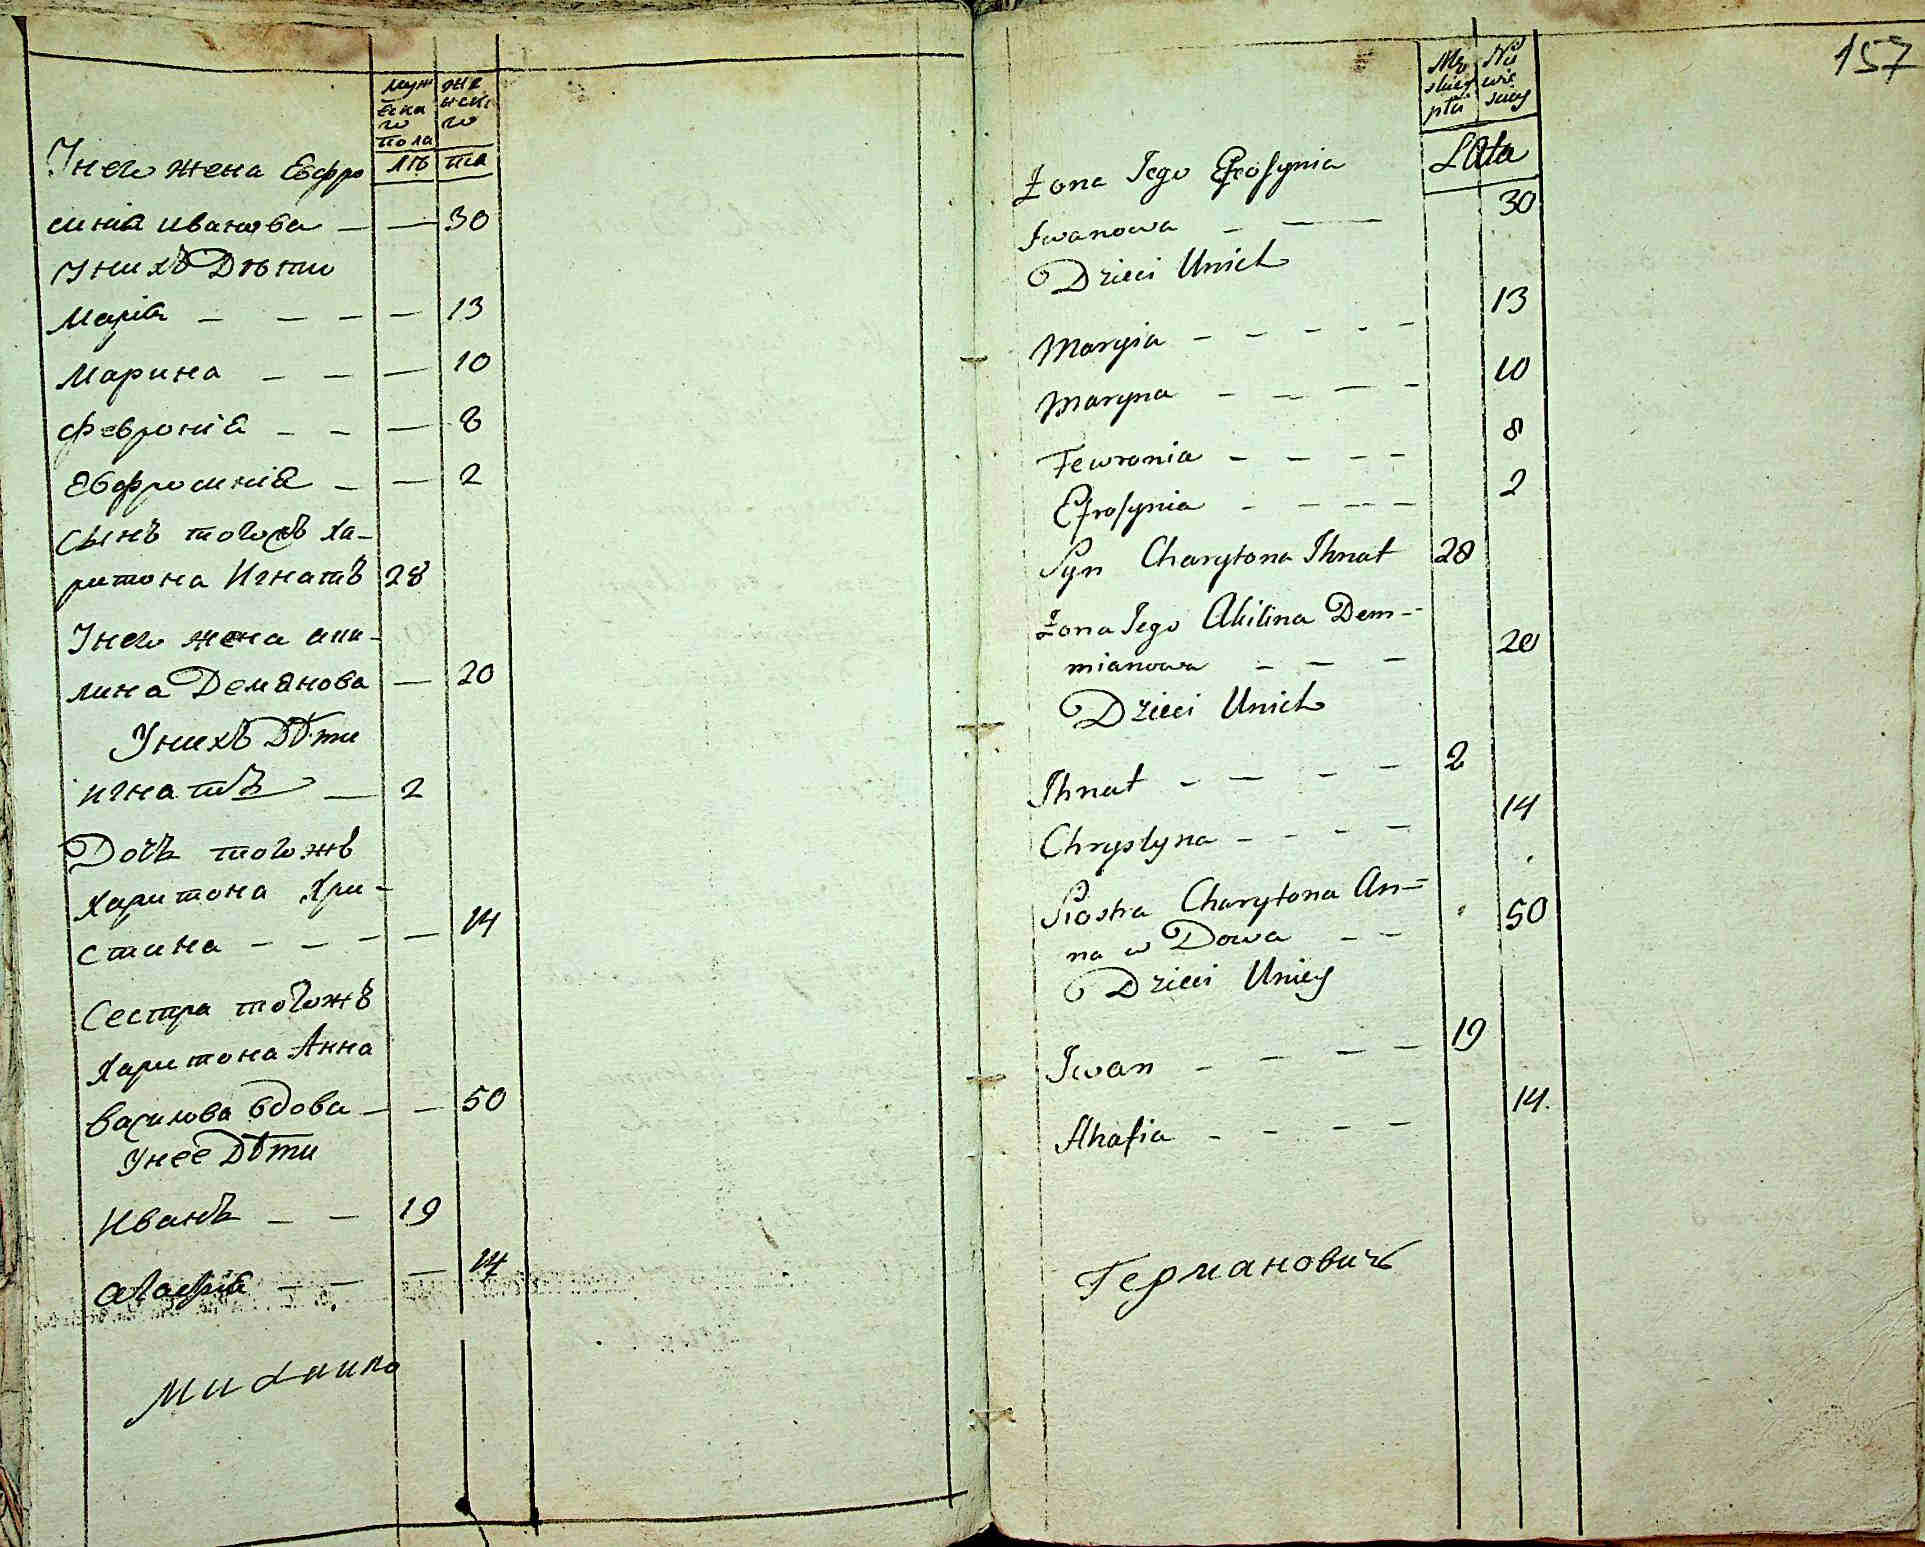 муж же
еска нска
го го
пола
лѣ та
Унего жена Евфро
синіа иванова — — 30
Унихъ Дѣти
Маріа — — — — 13
Марина — — — 10
Февроніа — — — 8
Евфросиніа — — 2
Сынъ тогожъ Ха-
ритона Игнатъ 28
Унего жена аки-
лина Деманова — 20
Унихъ Дѣти
игнатъ — 2
Дочь тогожъ
Харитона Хри-
стина — — — — 14
Сестра тогожъ
Харитона Анна
василова вдова — — 50
Унее Дѣти
Иванъ — — 19
агафіа — — — 14
Михаило
157
Lata
Żona Jego Efrosynia
Iwanowa — — 30
Dzieci Unich
Maryia — — — — — 13
Maryna — — — — 10
Fewronia — — — — 8
Efrosynia — — — — 2
Syn Charytona Ihnat 28
Żona Jego Akilina Dem-
mianowa — — — 20
Dzieci Unich
Ihnat — — — — 2
Chrystyna — — — — 14
Siostra Charytona An=
na w Dowa — — 50
Dzieci Uniey
Iwan — — — — 19
Ahafia — — — — 14.
Германовичъ